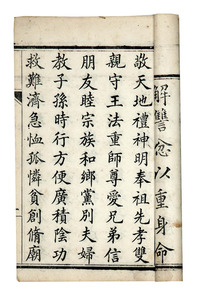 解讐忿以重身命
敬天地禮神明奉祖先孝雙
親守王法重師尊愛兄弟信
朋友睦宗族和鄉黨別夫婦
教子孫時行方便廣積陰功
救難濟急恤孤憐貧創脩廟